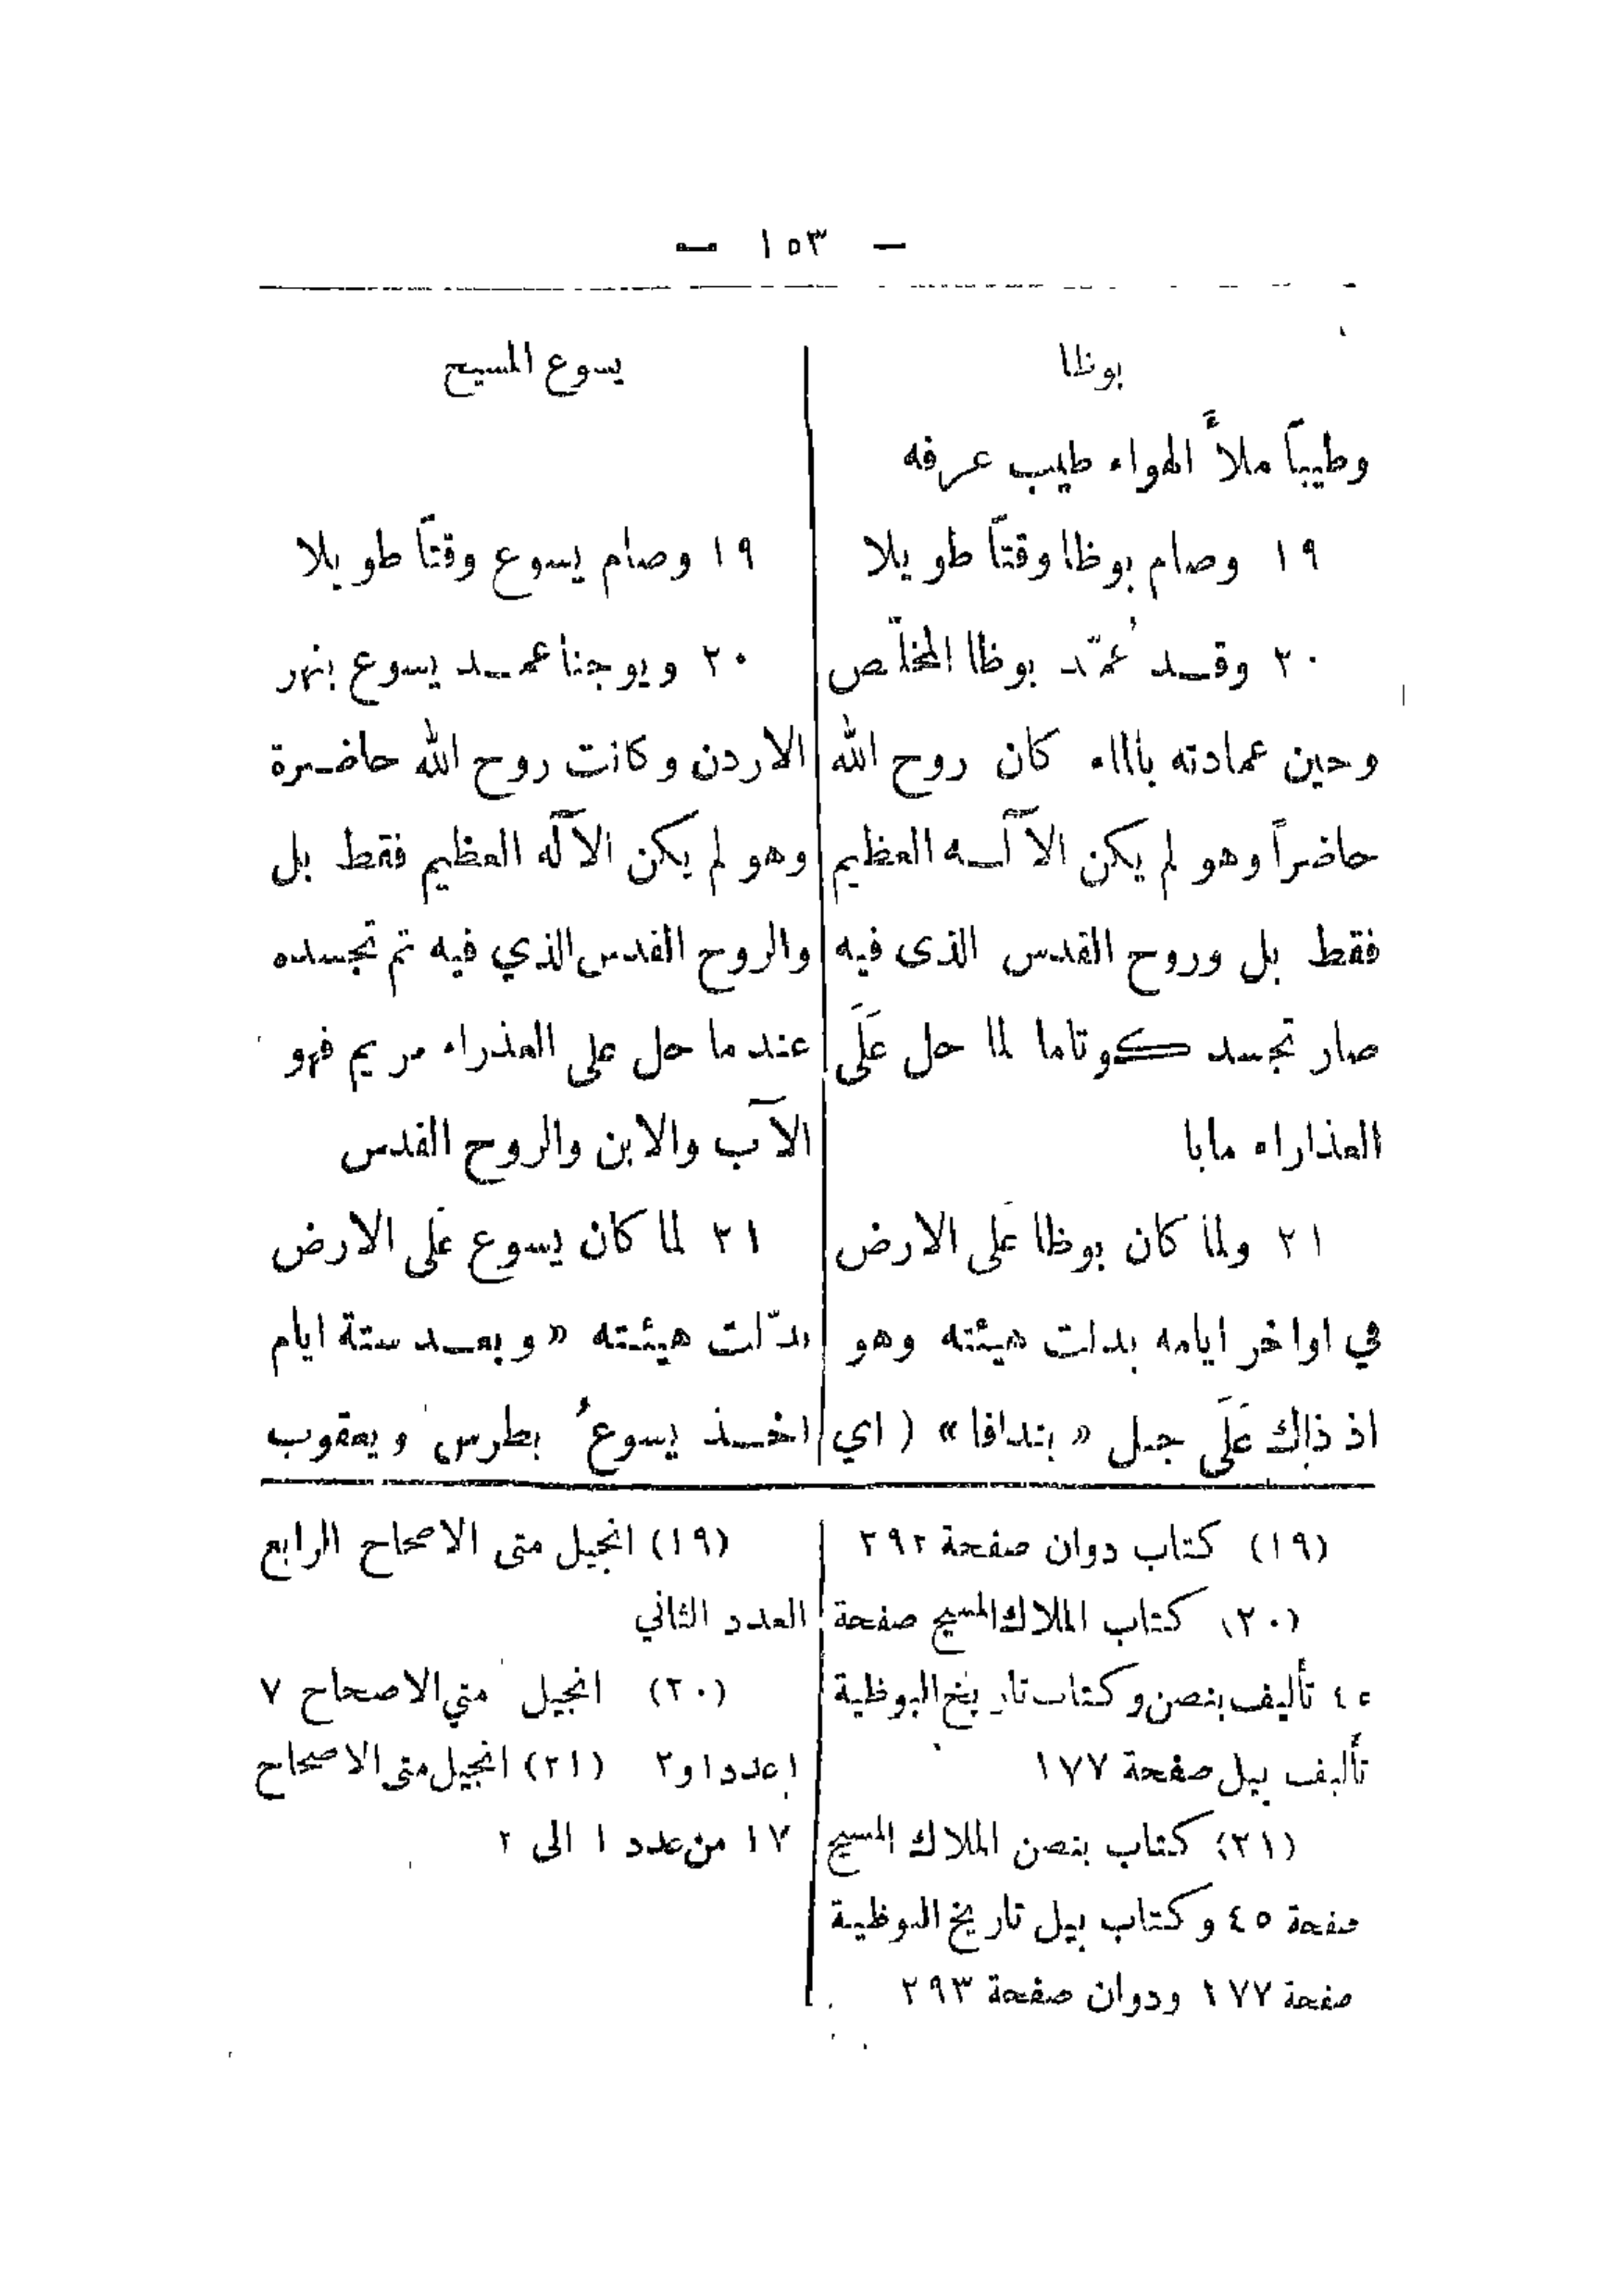 — ١٥٣ —
بوظا
وطيباً ملأَ الهواء طيب عرفه
١٩ وصام بوظا وقتاً طويلا
٢٠ وقد عُمّد بوظا المخلّص
وحين عمادته بالماء كان روح الله
حاضراً وهو لم يكن الآله العظيم
فقط بل وروح القدس الذى فيه
صار تجسد كوتاما لما حل عَلَى
العذاراء مايا
٢١ ولما كان بوظا عَلى الارض
في اواخر ايامه بدلت هيئته وهو
اذ ذاك عَلَى جبل « بندافا » ( اي
يسوع المسيح
١٩ وصام يسوع وقتاً طويلا
٢٠ ويوحنا عمد يسوع بنهر
الاردن وكانت روح الله حاضرة
وهو لم يكن الآله العظيم فقط بل
والروح القدس الذي فيه تم تجسده
عند ما حل على العذراء مريم فهو
الآب والابن والروح القدس
٢١ لما كان يسوع عَلى الارض
بدّلت هيئته « وبعد ستة ايام
اخذ يسوعُ بطرس ويعقوب
(١٩) كتاب دوان صفحة ٢٩٢
(٢٠) كتاب الملاك المسيح صفحة
٤٥ تأليف بنصن وكتاب تاريخ البوظية
تأليف بيل صفحة ١٧٧
(٢١) كتاب بنصن الملاك المسيح
صفحة ٤٥ وكتاب بيل تاريخ البوظية
صفحة ١٧٧ ودوان صفحة ٢٩٣
(١٩) انجيل متى الاصحاح الرابع
العدد الثاني
(٢٠) انجيل متي الاصحاح ٧
عدد ١ و٢ (٢١) انجيل متى الاصحاح
١٧ من عدد ١ الى ٢